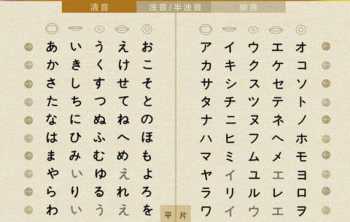 清音 浊音/半浊音 拗音
あ い う え お ア イ ウ エ オ
か き く け こ カ キ ク ケ コ
さ し す せ そ サ シ ス セ ソ
た ち つ て と タ チ ツ テ ト
な に ぬ ね の ナ ニ ヌ ネ ノ
は ひ ふ へ ほ ハ ヒ フ ヘ ホ
ま み む め も マ ミ ム メ モ
や い ゆ え よ ヤ イ ユ エ ヨ
ら り る れ ろ ラ リ ル レ ロ
わ い う え を ワ イ ウ エ ヲ
平 片